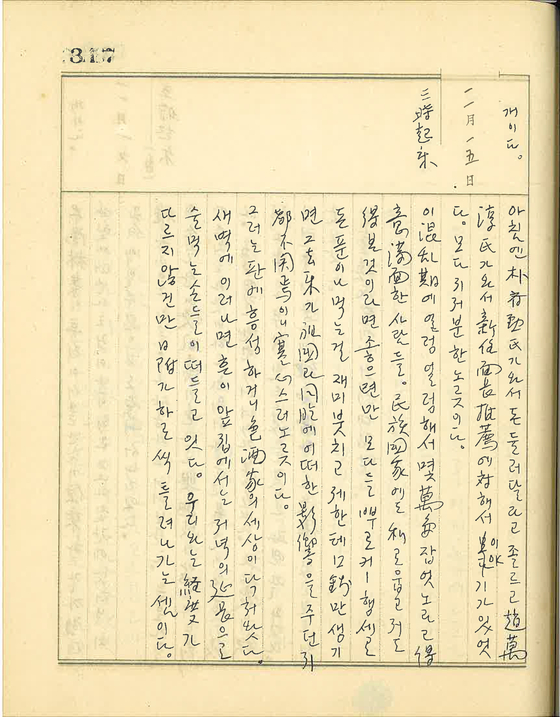 317
개이다。
一一月一五日
三時起床
아침엔 朴春勲氏가 와서 돈 둘러달라고 졸르고 趙萬
淳氏가 와서 新任面長推薦에 対해서 이야기가 있었
다。모다 귀치분한 노릇이다。
이 混乱期에 얼렁얼렁해서 몇萬円 잡었노라고 得
意満面한 사람들。民族国家에는 해로웁고 저도
得 본 것이라면 좋으련만 모다들 뿌로커ー 행세로
돈푼이나 먹는 걸 재미붓치고 제한테 12銭만 생기
면 그 去来가 祖国과 同胞에 어떠한 影響을 주던지
都不関焉이니 寒心스러운 노릇이다。
그러는 판에 흥성하거니 色酒家의 세상이 닥처왔다。
새벽에 이러나면 흔이 앞집에서는 저녁의 延長으로
술먹는 손들이 떠들고 있다。우리와는 経度가
다르지 않건만 日附가 하로씩 틀려나가는 셈이다。